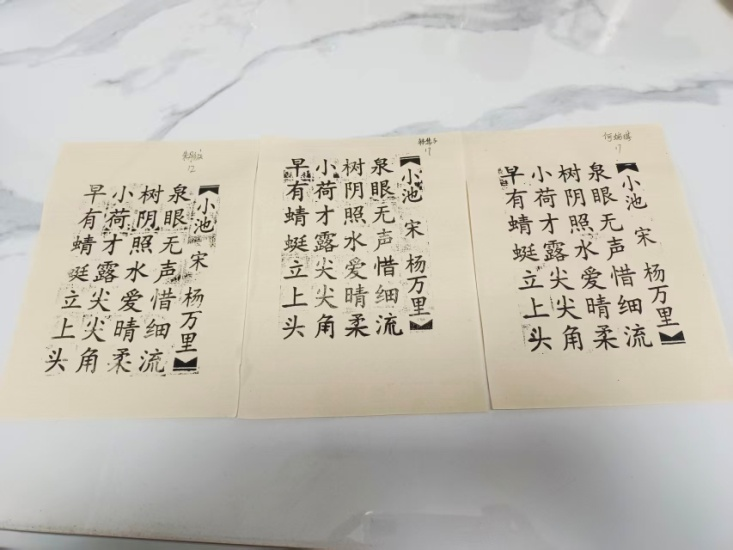 12
小池 宋 杨万里
泉眼无声惜细流
树阴照水爱晴柔
小荷才露尖尖角
早有蜻蜓立上头
17
小池 宋 杨万里
泉眼无声惜细流
树阴照水爱晴柔
小荷才露尖尖角
早有蜻蜓立上头
17
小池 宋 杨万里
泉眼无声惜细流
树阴照水爱晴柔
小荷才露尖尖角
早有蜻蜓立上头